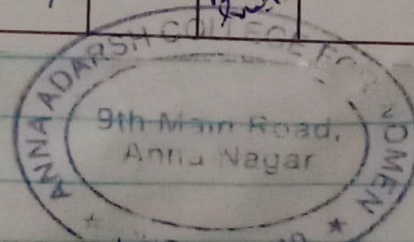 ANNA ADARSH COLLEGE FOR WOMEN
9th Main Road,
Anna Nagar